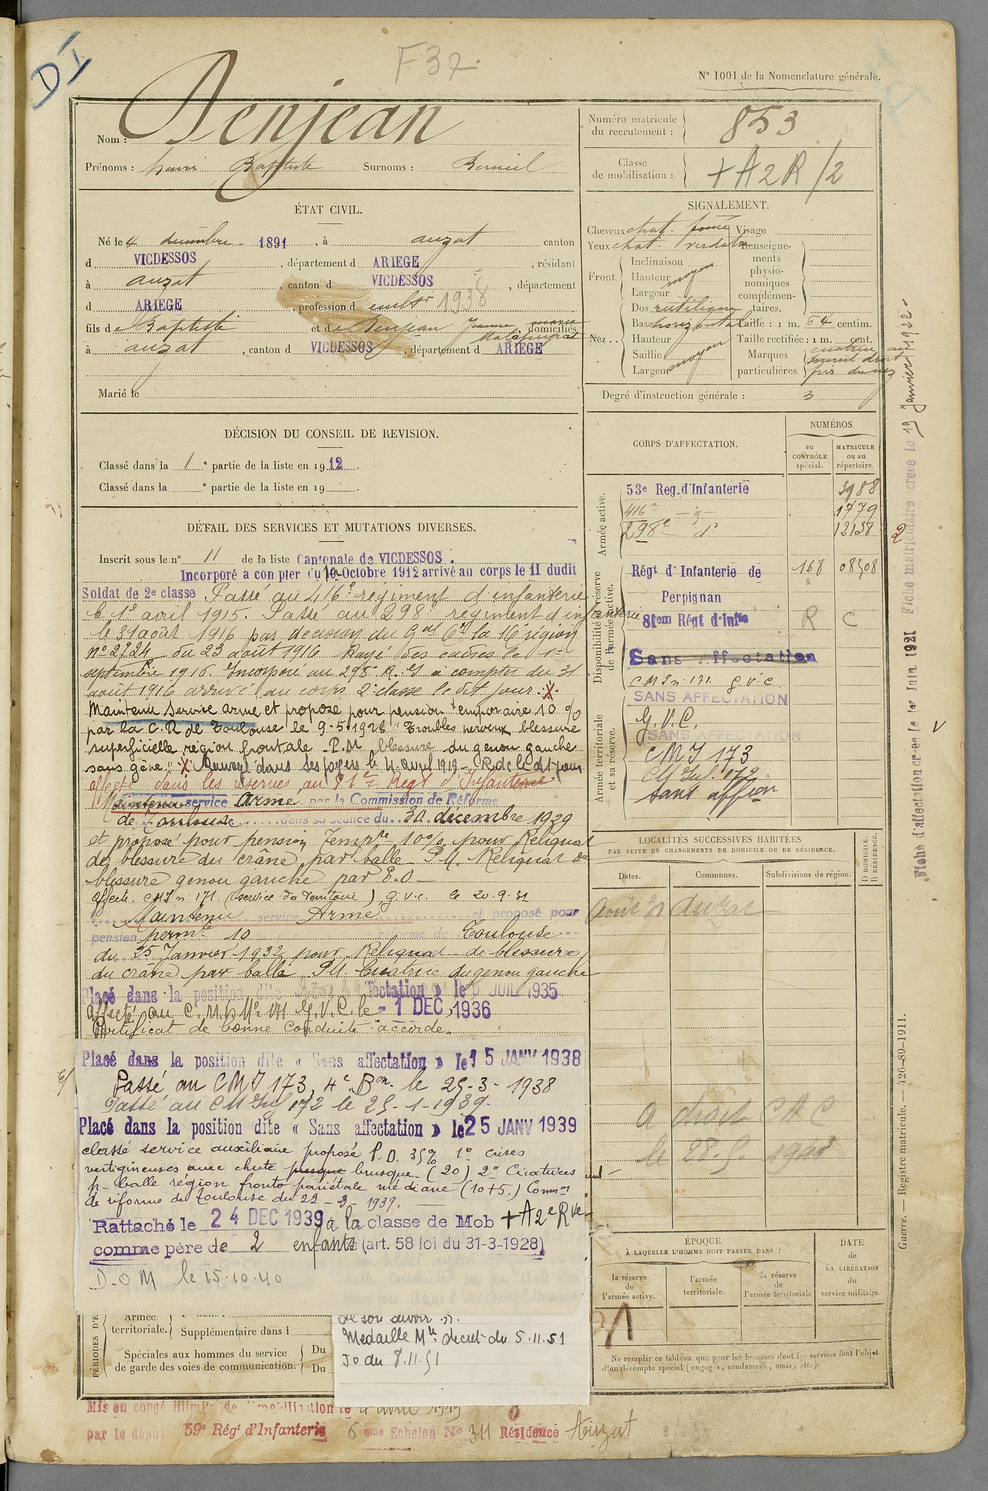 DI
F 37.
N° 1001 de la Nomenclature générale.
Nom : Denjean
Prénoms : henri Baptiste Surnoms :
Numéro matricule du recrutement : 853
Classe de mobilisation : + A 2 R / 2
ÉTAT CIVIL.
Né le 4 décembre 1891, à auzat canton
d VICDESSOS, département d ARIEGE, résidant
à auzat, canton d VICDESSOS, département
d ARIEGE, profession d cultr 1938
fils de Baptiste et de Denjean Jeanne, marie domiciliés
à auzat, canton d VICDESSOS, département d ARIEGE
Marié le
SIGNALEMENT.
Cheveux chat. foncé Visage
Yeux chat. verdatre Renseignements physionomiques complémentaires.
Front. Inclinaison
Hauteur moyen
Largeur
Nez... Dos rectiligne
Base horizontale Taille : 1 m. 54 centim.
Hauteur Taille rectifiée : 1 m. cent.
Saillie moyen Marques particulières.
Largeur
Degré d'instruction générale : 3
DÉCISION DU CONSEIL DE REVISION.
Classé dans la 1e partie de la liste en 1912.
Classé dans la e partie de la liste en 19
DÉTAIL DES SERVICES ET MUTATIONS DIVERSES.
Inscrit sous le n° 11 de la liste Cantonale de VICDESSOS.
Incorporé à compter du 10 Octobre 1912 arrivé au corps le 11 dudit
Soldat de 2e classe Passé au 416e régiment d'infanterie
le 1er avril 1915. Passé au 298e régiment d'infanterie
le 31 août 1916 par décision du Gal Ct la 16 région
n° 2724 du 23 août 1916 Rayé des cadres le 1er
septembre 1916. Incorporé au 298e R.I à compter du 31
août 1916 arrivé au corps 2e classe le dit jour. X.
Maintenu Service armé et proposé pour pension temporaire 10 %
par la C.R de Toulouse le 9-5-1928 Troubles nerveux blessure
superficielle région frontale - P.M blessure du genou gauche
sans gêne. X Renvoyé dans ses foyers le 4 avril 1919
affecté dans les réserves au 81e Régt d'Infanterie
Maintenu service Armé par la Commission de Réforme
de Toulouse dans sa séance du 30 décembre 1929
et proposé pour pension Tempre 10 % pour Reliquat
de blessure du crâne par balle - P.M. Reliquat de
blessure genou gauche par E.O
Affecté CMI n° 171 (service du Territoire) g.v.c. le 20.9.31
Maintenu service Armé et proposé pour
pension permte 10 réforme de Toulouse
du 25 Janvier 1932 pour Reliquat de blessure
du crâne par balle P.M Cicatrice du genou gauche
Placé dans la position dite fectation » le JUIL 1935
affecté au C.M.I. N° 171 G.V.C le - 1 DEC 1936
Certificat de bonne conduite accordé.
Placé dans la position dite « Sans affectation » le 15 JANV 1938
Passé au CMI 173, 4e Bon le 25-3-1938
Passé au CM Inf 172 le 25-1-1939.
Placé dans la position dite « Sans affectation » le 25 JANV 1939
classé service auxiliaire proposé P.D. 35% 1° crises
vertigineuses avec chute presque brusque (20) 2° Cicatrices
p. balle région fronto pariétale médiane (10+5.) Common
de réforme de Toulouse du 22 - 3 1939.
Rattaché le 24 DEC 1939 à la classe de Mob + A 2e Rve
comme père de 2 enfants (art. 58 loi du 31-3-1928)
D.O M le 15.10.40
CORPS D'AFFECTATION.
NUMÉROS
au CONTRÔLE spécial.
MATRICULE ou au répertoire.
Armée active.
53e Reg. d'Infanterie 3988
416e - 1779
298e d° 12138
Disponibilité et réserve de l'armée active.
Régt d'Infanterie de Perpignan 168 08508
81em Régt d'Infie R C
Sans Affectation
CMI n. 171. g.v.c
SANS AFFECTATION
Armée territoriale et sa réserve.
G.V.C.
SANS AFFECTATION
CMI 173
CM Inf. 172.
Sans affion
LOCALITÉS SUCCESSIVES HABITÉES
PAR SUITE DE CHANGEMENTS DE DOMICILE OU DE RÉSIDENCE.
Dates. Communes. Subdivisions de région. D DOMICILE. R RÉSIDENCE.
Août 31 Auzat
a droit C A C
ÉPOQUE
À LAQUELLE L'HOMME DOIT PASSER DANS :
la réserve de l'armée active.
l'armée territoriale.
la réserve de l'armée territoriale
DATE de LA LIBÉRATION du service militaire.
Ne remplir ce tableau que pour les hommes dont les services font l'objet d'un décompte spécial (engagés, condamnés, omis, etc.).
PÉRIODES D'E
Armée territoriale.
Supplémentaire dans l
Spéciales aux hommes du service de garde des voies de communication. Du
Du
de son devoir ».
Médaille Mre décret du 5.11.51
Jo du 8.11.51
Mis en congé illimité de démobilisation le 4 avril 1919
par le dépôt 59e Régt d'Infanterie 6eme Echelon N° 311 Résidence Auzat
Fiche matriculaire créée le 19 Janvier 1922
Fiche d'affectation créée le 1er Juin 1921
Guerre. — Registre matricule. — 426-89-1911.